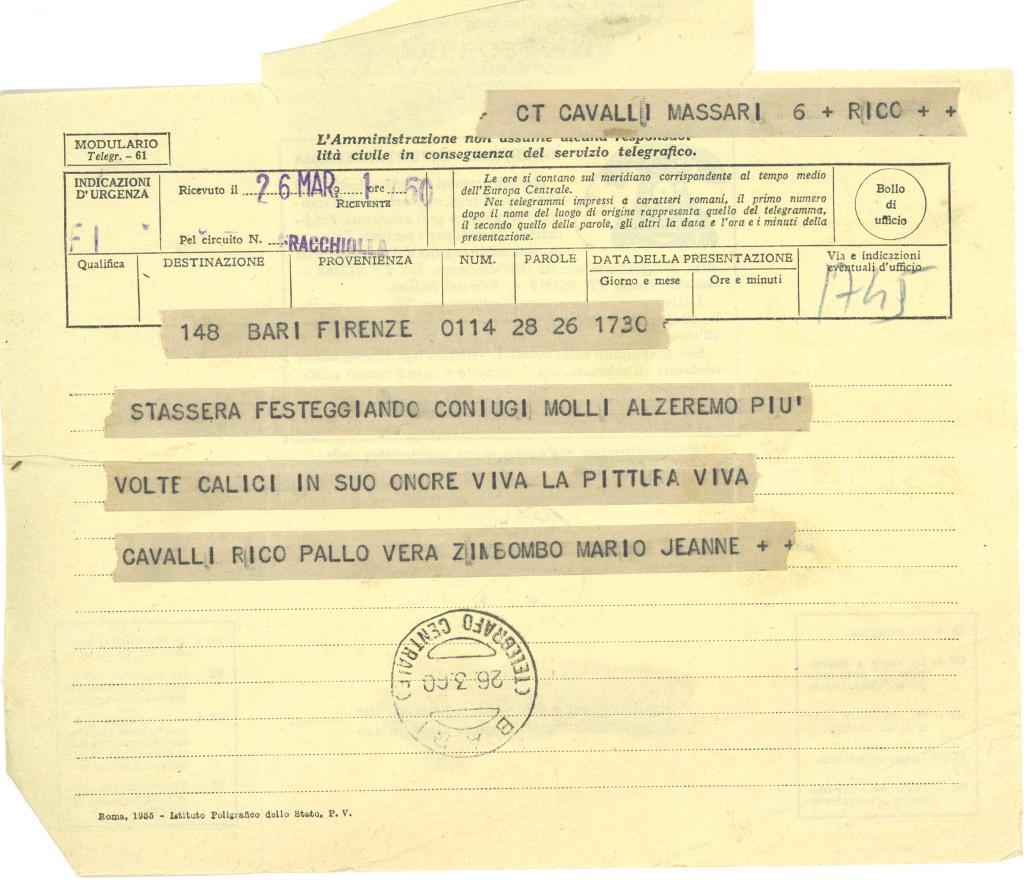 CT CAVALLI MASSARI 6 + RICO + +
MODULARIO
Telegr. - 61
L'Amministrazione non assume alcuna responsabi
lità civile in conseguenza del servizio telegrafico.
INDICAZIONI
D'URGENZA
Ricevuto il 26 MAR. 1960 ore
RICEVENTE
Pel circuito N. FRACCHIOLLA
Le ore si contano sul meridiano corrispondente al tempo medio
dell'Europa Centrale.
Nei telegrammi impressi a caratteri romani, il primo numero
dopo il nome del luogo di origine rappresenta quello del telegramma,
il secondo quello delle parole, gli altri la data e l'ora e i minuti della
presentazione.
Bollo
di
ufficio
Qualifica
DESTINAZIONE
PROVENIENZA
NUM.
PAROLE
DATA DELLA PRESENTAZIONE
Giorno e mese
Ore e minuti
Via e indicazioni
eventuali d'ufficio
1745
148 BARI FIRENZE 0114 28 26 1730
STASSERA FESTEGGIANDO CONIUGI MOLLI ALZEREMO PIU'
VOLTE CALICI IN SUO ONORE VIVA LA PITTURA VIVA
CAVALLI RICO PALLO VERA ZIMBOMBO MARIO JEANNE + +
BARI
(TELEGRAFO CENTRALE)
26.3.60
Roma, 1955 - Istituto Poligrafico dello Stato, P. V.